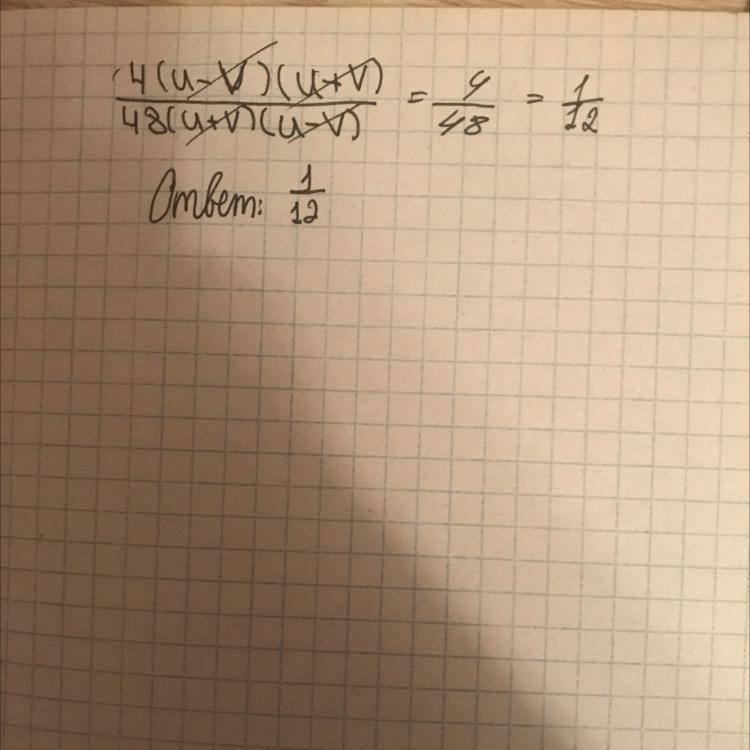 4(u-v)(u+v)/48(u+v)(u-v) = 4/48 = 1/12
Ответ: 1/12